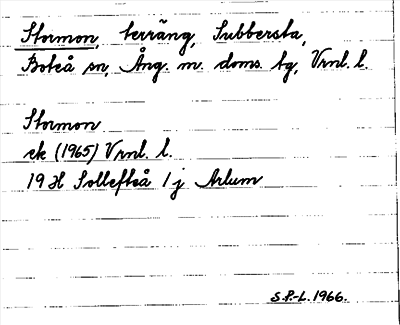 Stormon, terräng, Subbersta,
Boteå sn, Ång. m. doms. tg, Vrnl. l.
Stormon
ek (1965) Vrnl. l.
19 H Sollefteå 1 j Arlum
S.P.-L. 1966.